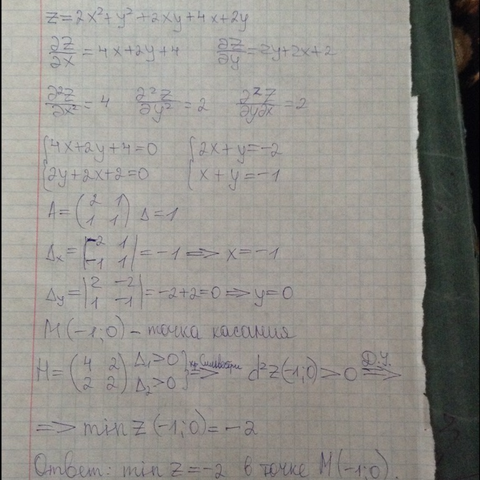 z=2x²+y²+2xy+4x+2y
∂z/∂x=4x+2y+4 ∂z/∂y=2y+2x+2
∂²z/∂x²=4 ∂²z/∂y²=2 ∂²z/∂y∂x=2
{4x+2y+4=0 {2x+y=-2
{2y+2x+2=0 {x+y=-1
A=(2 1; 1 1) Δ=1
Δx=|-2 1; -1 1|=-1⇒x=-1
Δy=|2 -2; 1 -1|=-2+2=0⇒y=0
M(-1;0)-точка касания
H=(4 2; 2 2) Δ₁>0 Δ₂>0}⇒ d²z(-1;0)>0 Д.У.⇒
⇒min z(-1;0)=-2
Ответ: min z=-2 в точке M(-1;0).